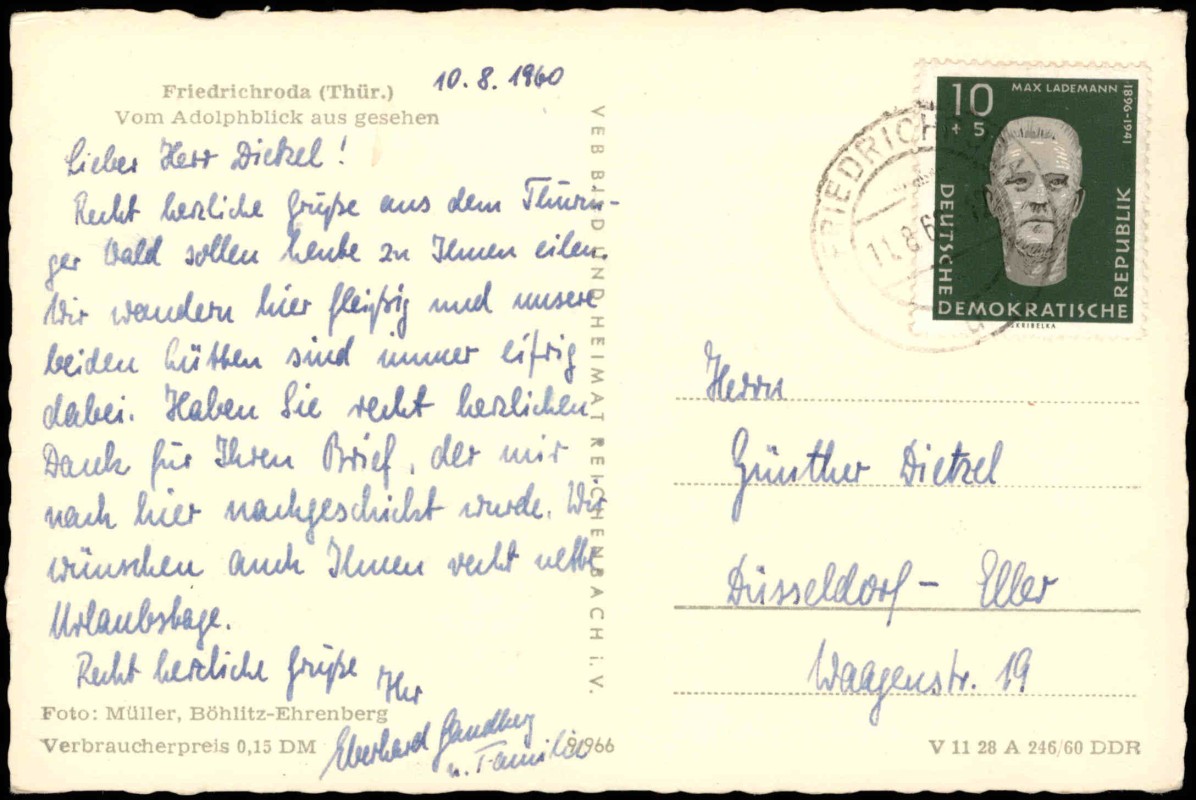 10.8.1960
Friedrichroda (Thür.)
Vom Adolphblick aus gesehen
Lieber Herr Dietzel!
Recht herzliche Grüße aus dem Thürin-
ger Wald sollen heute zu Ihnen eilen.
Wir wandern hier fleißig und unsere
beiden sind immer eifrig
dabei. Haben Sie recht herzlichen
Dank für Ihren Brief, der mir
nach hier nachgeschickt wurde. Wir
wünschen auch Ihnen recht nette
Urlaubstage.
Recht herzliche Grüße
Ihr
Eberhard
u. Familie
Foto: Müller, Böhlitz-Ehrenberg
Verbraucherpreis 0,15 DM
9966
VEB BILD UND HEIMAT REICHENBACH i. V.
10
+ 5
MAX LADEMANN
1896-1941
DEUTSCHE
DEMOKRATISCHE
REPUBLIK
SKRIBELKA
FRIEDRICHRODA
11.8.6
Herrn
Günther Dietzel
Düsseldorf - Eller
Waagenstr. 19
V 11 28 A 246/60 DDR